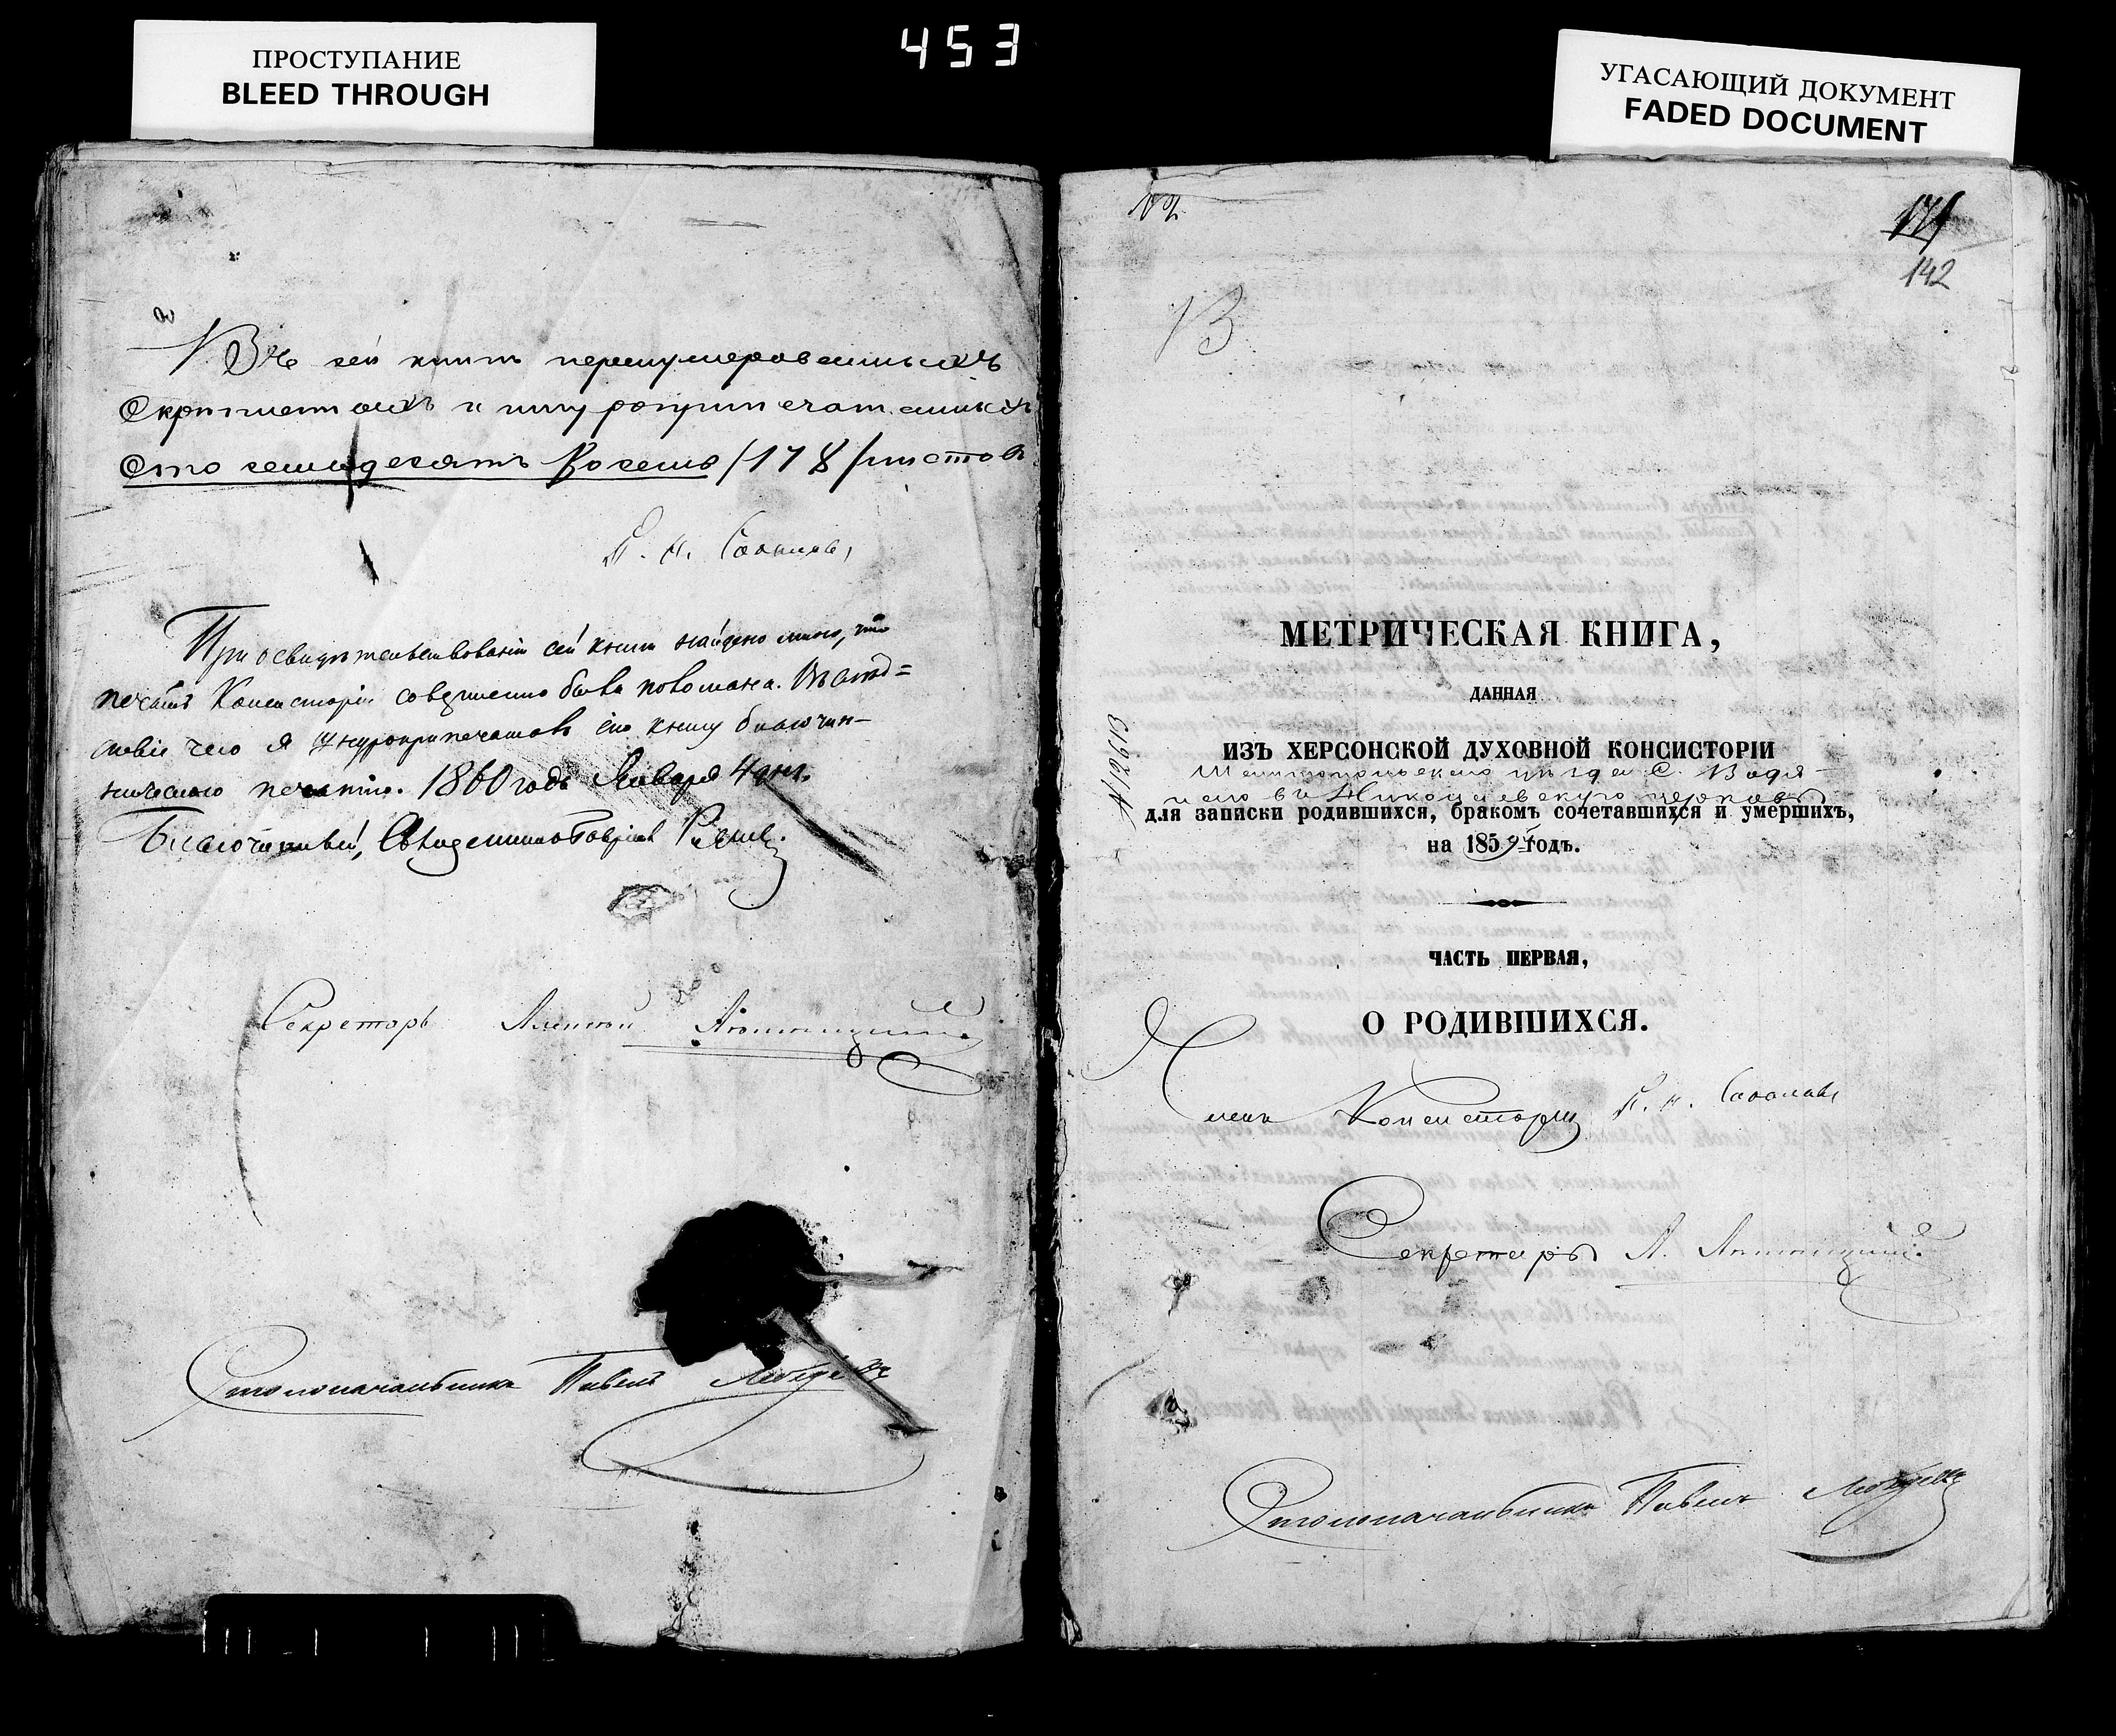 ПРОСТУПАНИЕ
BLEED THROUGH
453
УГАСАЮЩИЙ ДОКУМЕНТ
FADED DOCUMENT
Въ сей книгѣ перенумерованныхъ
Скрѣпленныхъ и шнуроприпечатанныхъ
Сто семьдесятъ Восемь /178/ листовъ
При освидѣтельствованіи сей книги найдено мною, что
печать Консисторіи совершенно была поломана. Въ слѣд=
ствіе чего я шнуроприпечаталъ сію книгу благочин-
ническою печатію. 1860 года Января 4 дня.
Благочинный, Священникъ Гавріилъ
Секретарь
Столоначальникъ Павелъ
142
МЕТРИЧЕСКАЯ КНИГА,
ДАННАЯ
ИЗЪ ХЕРСОНСКОЙ ДУХОВНОЙ КОНСИСТОРІИ
уѣзда С. Водя-
въ Николаевскую церковь
для записки родившихся, бракомъ сочетавшихся и умершихъ,
на 1859 годъ.
№ 12613
ЧАСТЬ ПЕРВАЯ,
О РОДИВШИХСЯ.
Членъ Консисторіи
Секретарь А.
Столоначальникъ Павелъ